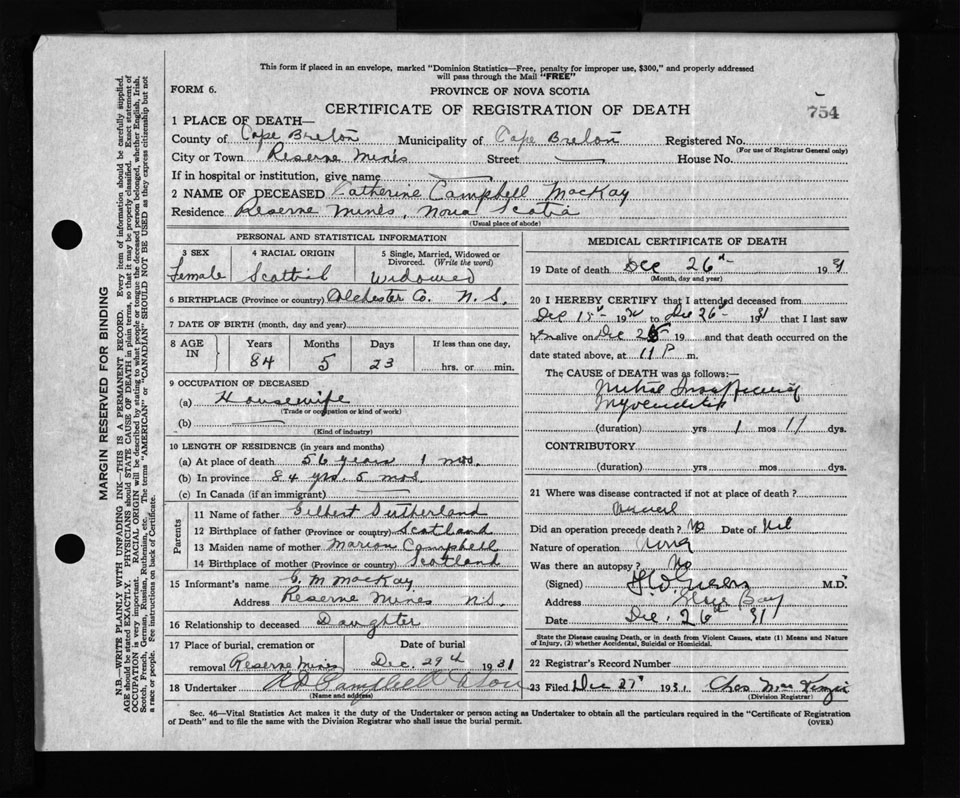 This form if placed in an envelope, marked "Dominion Statistics—Free, penalty for improper use, $300," and properly addressed
will pass through the Mail "FREE"
FORM 6.
PROVINCE OF NOVA SCOTIA
CERTIFICATE OF REGISTRATION OF DEATH
754
1 PLACE OF DEATH—
County of Cape Breton Municipality of Cape Breton Registered No.
(For use of Registrar General only)
City or Town Reserve Mines Street — House No.
If in hospital or institution, give name —
2 NAME OF DECEASED Catherine Campbell MacKay
Residence Reserve Mines, Nova Scotia
(Usual place of abode)
PERSONAL AND STATISTICAL INFORMATION
3 SEX 4 RACIAL ORIGIN 5 Single, Married, Widowed or Divorced. (Write the word)
Female Scottish Widowed
6 BIRTHPLACE (Province or country) Colchester Co. N.S.
7 DATE OF BIRTH (month, day and year)
8 AGE IN Years Months Days If less than one day,
84 5 23 hrs. or min.
9 OCCUPATION OF DECEASED
(a) Housewife
(Trade or occupation or kind of work)
(b) —
(Kind of industry)
10 LENGTH OF RESIDENCE (in years and months)
(a) At place of death 56 years 1 mos.
(b) In province 84 yrs. 5 mos.
(c) In Canada (if an immigrant) —
Parents
11 Name of father Gilbert Sutherland
12 Birthplace of father (Province or country) Scotland
13 Maiden name of mother Marion Campbell
14 Birthplace of mother (Province or country) Scotland
15 Informant's name C. M MacKay
Address Reserve Mines N.S.
16 Relationship to deceased Daughter
17 Place of burial, cremation or Date of burial
removal Reserve Mines Dec. 29th 1931
18 Undertaker Campbell & Son
(Name and address)
MEDICAL CERTIFICATE OF DEATH
19 Date of death Dec 26th 1931
(Month, day and year)
20 I HEREBY CERTIFY that I attended deceased from
Dec 15th 19 to Dec 26th 1931 that I last saw
h alive on Dec 19 and that death occurred on the
date stated above, at 11 P m.
The CAUSE of DEATH was as follows:—
Mitral Insufficiency
Myocarditis
(duration) yrs 1 mos 11 dys.
CONTRIBUTORY
(duration) yrs. mos. dys.
21 Where was disease contracted if not at place of death?
Did an operation precede death? No Date of Nil
Nature of operation None
Was there an autopsy? No
(Signed) M.D.
Address Glace Bay
Date Dec. 26th 31
State the Disease causing Death, or in death from Violent Causes, state (1) Means and Nature
of Injury, (2) whether Accidental, Suicidal or Homicidal.
22 Registrar's Record Number
23 Filed Dec 27 1931. Chas MacKenzie
(Division Registrar)
Sec. 46—Vital Statistics Act makes it the duty of the Undertaker or person acting as Undertaker to obtain all the particulars required in the "Certificate of Registration
of Death" and to file the same with the Division Registrar who shall issue the burial permit.
(OVER)
MARGIN RESERVED FOR BINDING
N.B.—WRITE PLAINLY WITH UNFADING INK—THIS IS A PERMANENT RECORD. Every item of information should be carefully supplied.
AGE should be stated EXACTLY. PHYSICIANS should STATE CAUSE OF DEATH in plain terms, so that it may be properly classified. Exact statement of
OCCUPATION is very important. RACIAL ORIGIN will be described by stating to what people or tongue the deceased person belonged, whether English, Irish,
Scotch, French, German, Russian, Ruthenian, etc. The terms "AMERICAN" or "CANADIAN" SHOULD NOT BE USED as they express citizenship but not
a race or people. See instructions on back of Certificate.